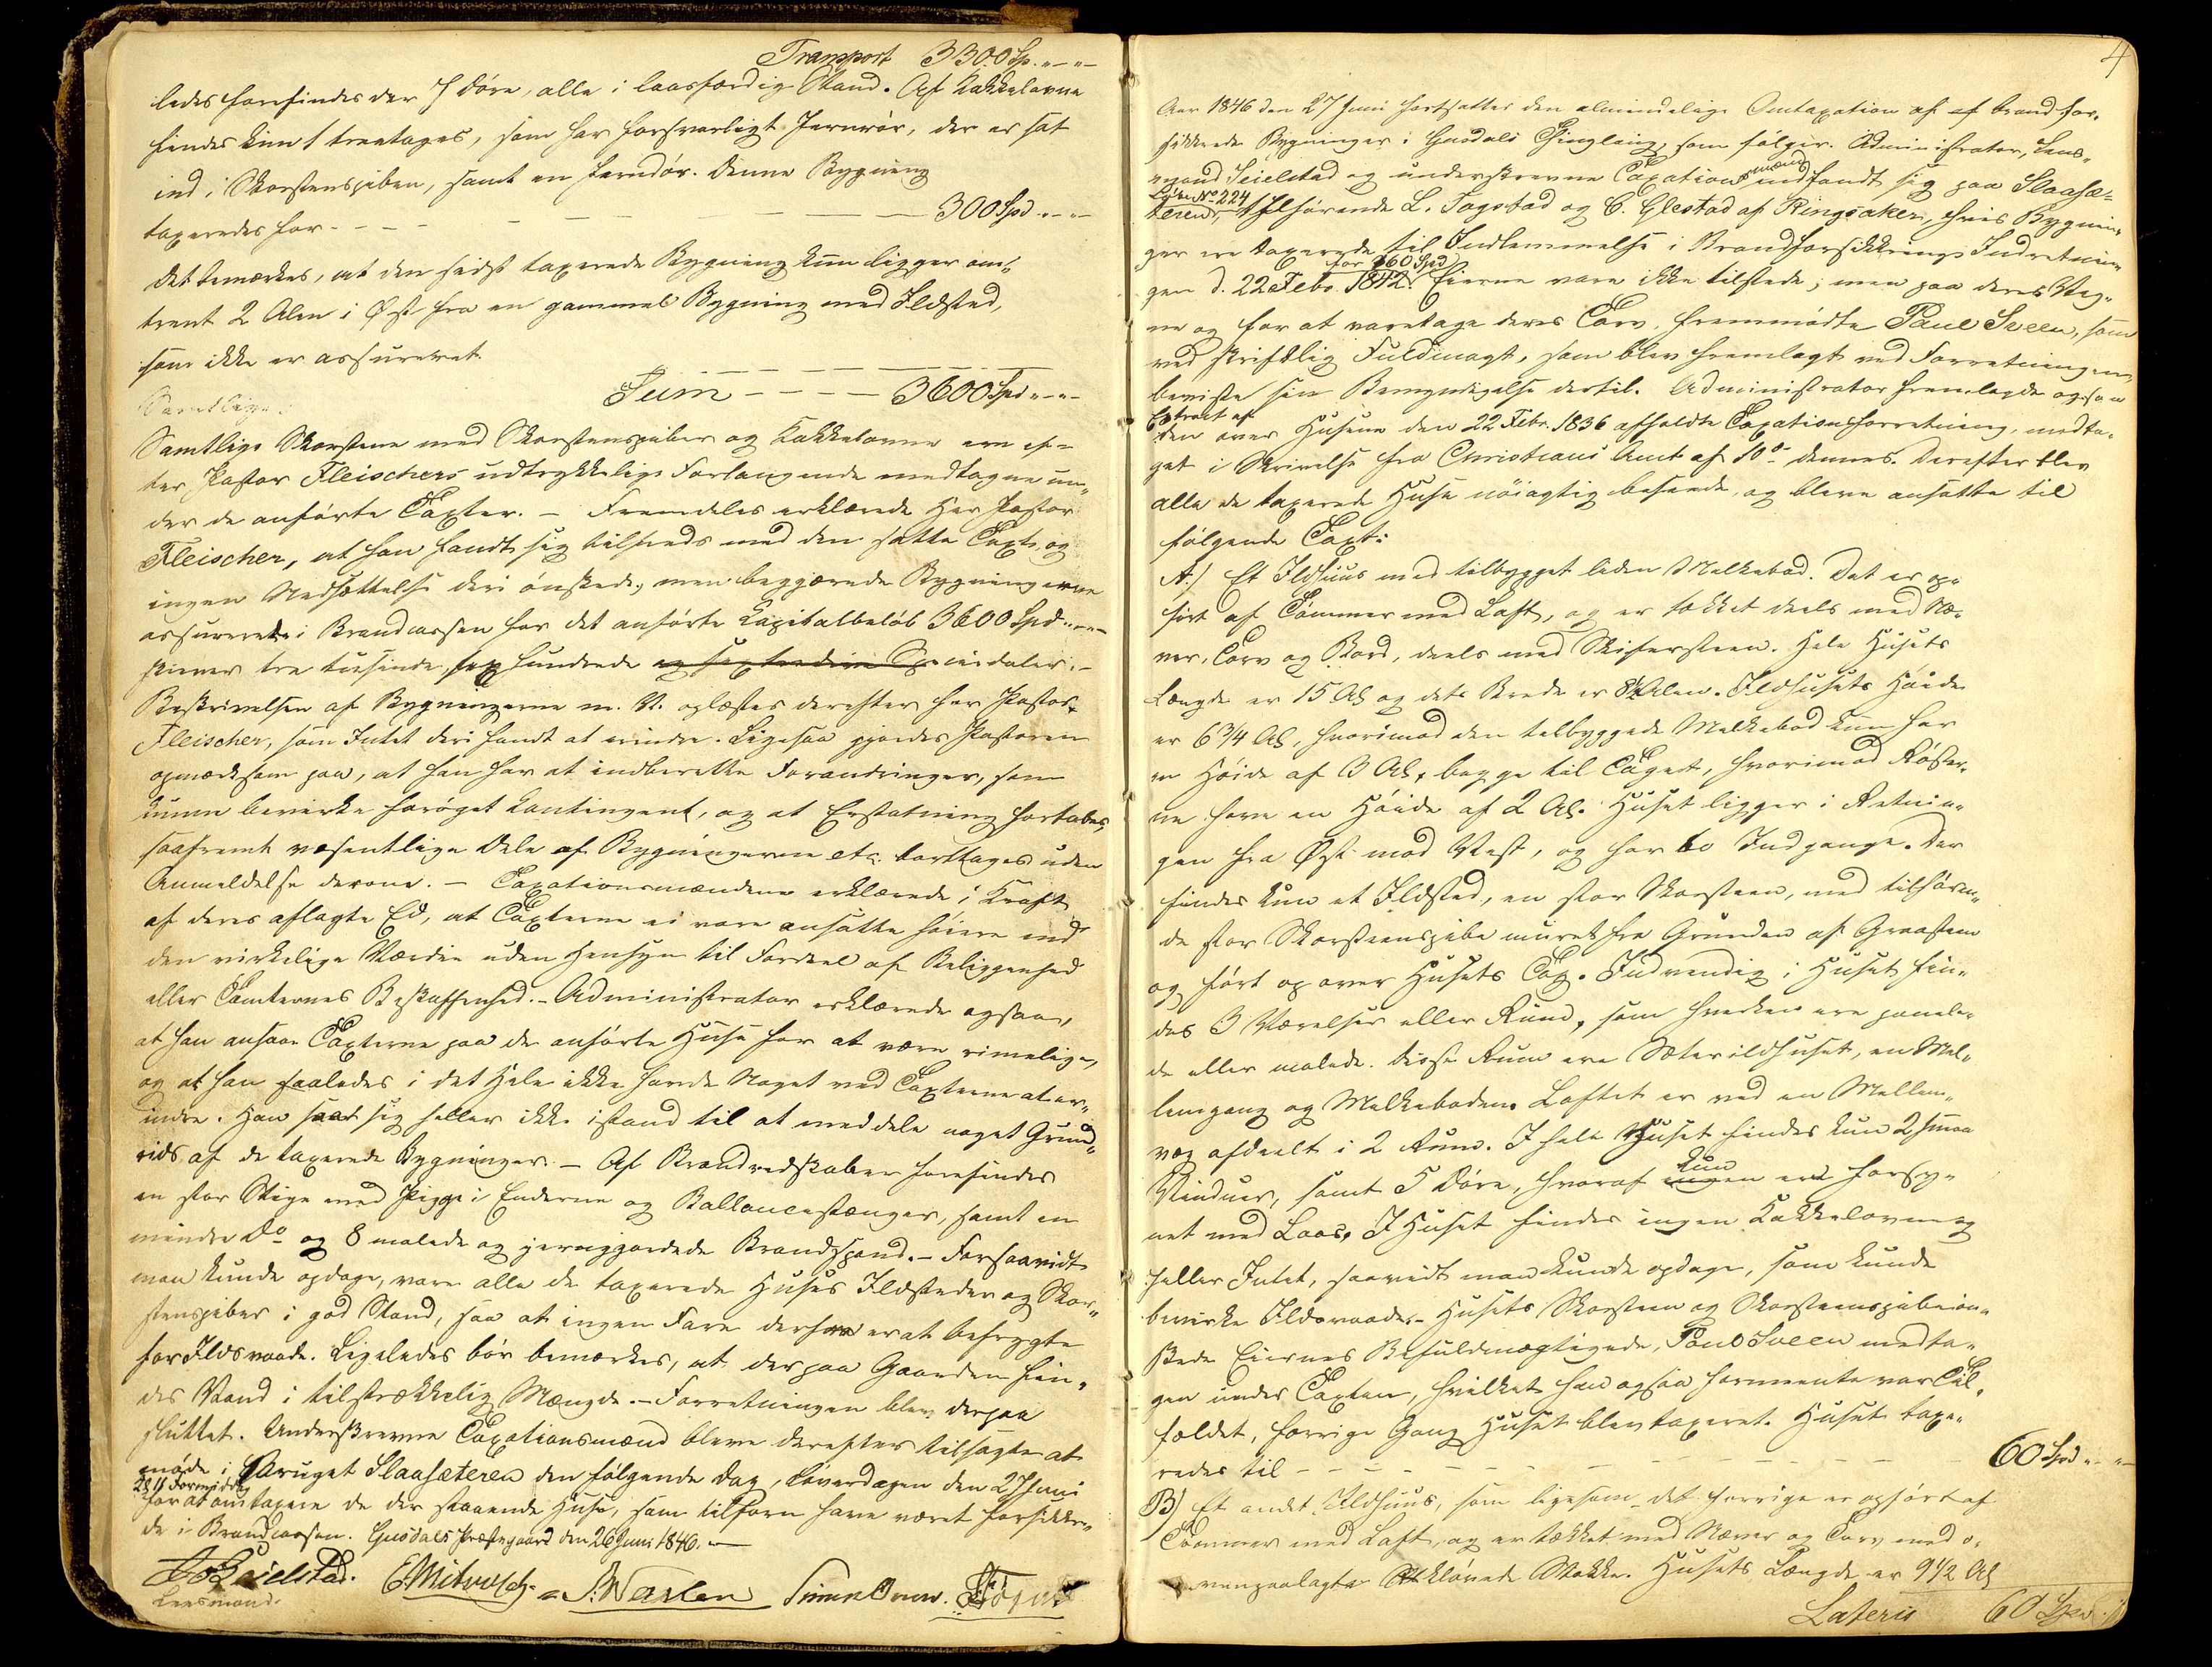 Transport 3300 Sp. „ - „ -
ledes forefindes der 7 Døre, alle i laasfærdig Stand. Af Kakkelovne
findes kun 1 treetages, som har forsvarligt Jernrør, der er sat
ind i Skorstenspiben, samt en Jerndør. Denne Bygning
taxeredes for - - - - - 300 Spd. „ - „
Det bemærkes, at den sidst taxerede Bygning kun ligger om„
trent 2 Alen i Øst fra en gammel Bygning med Ildsted,
som ikke er assureret.
Sum - - - - 3600 Spd „ - „ -
Samtlige
Samtlige Skorstene med Skorstenspiber og Kakkelovne ere ef=
ter Pastor Fleischers udtrykkelige Forlangende medtagne un„
der de anførte Taxter. - Fremdeles erklærede Her Pastor
Fleischer, at han fandt sig tilfreds med den satte Taxt, og
ingen Nedsættelse deri ønskede, men begjærede Bygningerne
assurerede i Brandcassen for det anførte Kapitalbeløb 3600 Spd „ - „ -
skriver tre tusinde, sex hundrede og sextredive Speciedaler. -
Beskrivelsen af Bygningerne m. V. oplæstes derefter for Pastor
Fleischer, som Intet deri fandt at erindre. Ligesaa gjordes Pastoren
opmærksom paa, at han har at indberette Forandringer, som
kunne bevirke forøget Kontingent, og at Erstatning fortabes,
saafremt væsentlige Dele af Bygningerne etc. borttages uden
Anmeldelse derom. - Taxationsmændene erklærede i Kraft
af deres aflagte Ed, at Taxterne ei vare ansatte høiere end
den virkelige Værdie uden Hensyn til Fordeel af Beliggenhed
eller Tomternes Beskaffenhed. - Administrator erklærede ogsaa,
at han ansaae Taxterne paa de anførte Huse for at være rimelige,
og at han saaledes i det Hele ikke havde Noget ved Taxterne at er„
indre. Han saae sig heller ikke istand til at meddele noget Grund„
rids af de taxerede Bygninger. - Af Brandredskaber forefindes
en stor Stige med Pigge i Enderne og Ballancestænger, samt en
mindre do og 8 malede og jerngjordede Brandspand. - Forsaavidt
man kunde opdage, vare alle de taxerede Huses Ildsteder og Skor„
stenspiber i god Stand, saa at ingen Fare derfra er at befrygte
for Ildsvaade. Ligeledes bør bemærkes, at der paa Gaarden fin„
des Vand i tilstrækkelig Mængde. - Forretningen blev derpaa
sluttet. Underskrevne Taxationsmænd bleve derefter tilsagte at
møde i Bruget Slaasæteren den følgende Dag, Løverdagen den 27 Juni
Kl 11 Formiddag
for at omtaxere de der staaende Huse, som tilforn have været forsikre„
de i Brandcassen. Gusdals Præstegaard den 26 Juni 1846. -
Seielstad.
Lensmand.
4
Aar 1846 den 27 Juni fortsattes den almindelige Omtaxation af af brandfor„
sikkrede Bygninger i Gusdals Thinglaug, som følger. Administrator, Lens„
mand Seielstad og underskrevne Taxationsmænd indfandt sig paa Slaasæ„
Løbe No 224
teren, tilhørende L. Fagstad og C. Glestad af Ringsaker, hvis Bygnin„
ger ere taxerede til Indlemmelse i Brandforsikkrings Indretnin„
for 160 Spd
gen d. 22 Febr. 1842. Eierne vare ikke tilstede; men paa deres Veg„
ne og for at varetage deres Tarv, fremmødte Paul Sveen, som
ved skriftlig Fuldmagt, som blev fremlagt ved Forretningen,
beviste sin Bemyndigelse dertil. Administrator fremlagde ogsaa
Extract af
den over Husene den 22 Febr. 1836 afholdte Taxationsforretning, modta„
get i Skrivelse fra Christians Amt af 10de dennes. Derefter blev
alle de taxerede Huse nøiagtig beseede, og bleve ansatte til
følgende Taxt:
A:) Et Ildhuus med tilbygget liden Melkebod. Det er op„
ført af Tømmer med Loft, og er tækket deels med Næ„
ver, Torv og Bord, deels med Skifersteen. Hele Husets
Længde er 15 Al og dets Brede er 8½ Alen. Ildhusets Høide
er 6¾ Al, hvorimod den tilbyggede Melkebod kun har
en Høide af 3 Al, begge til Taget, hvorimod Røster„
ne have en Høide af 2 Al. Huset ligger i Retnin„
gen fra Øst mod Vest, og har to Indgange. Der
findes kun et Ildsted, en stor Skorsteen, med tilhøren„
de stor Skorsteenspibe muret fra Grunden af Graasteen
og ført op over Husets Tag. Indvendig i Huset fin„
des 3 Værelser eller Rum, som hverken ere panele„
de eller malede. Disse Rum ere Sæterildhuset, en Mel„
lemgang og Melkeboden. Loftet er ved en Mellem„
væg afdeelt i 2 Rum. I hele Huset findes kun 2 smaa
Vinduer, samt 5 Døre, hvoraf ingen kun en er forsy„
net med Laas. I Huset findes ingen Kakkelovn og
heller Intet, saavidt man kunde opdage, som kunde
bevirke Ildsvaade. - Husets Skorsteen og Skorsteenspibe øn„
skede Eiernes Befuldmægtigede, Paul Sveen medta„
gen under Taxten, hvilket han ogsaa formeente var Til„
fældet, forrige Gang Huset blev taxeret. Huset taxe„
redes til - - - - - - - 60 Spd „ - „ -
B) Et andet Ildhuus, som ligesom det forrige er opført af
Tømmer med Loft, og er tækket med Næver og Torv med o„
venpaalagte kløvede Stokke. Husets Længde er 9½ Al
Lateris 60 Spd „